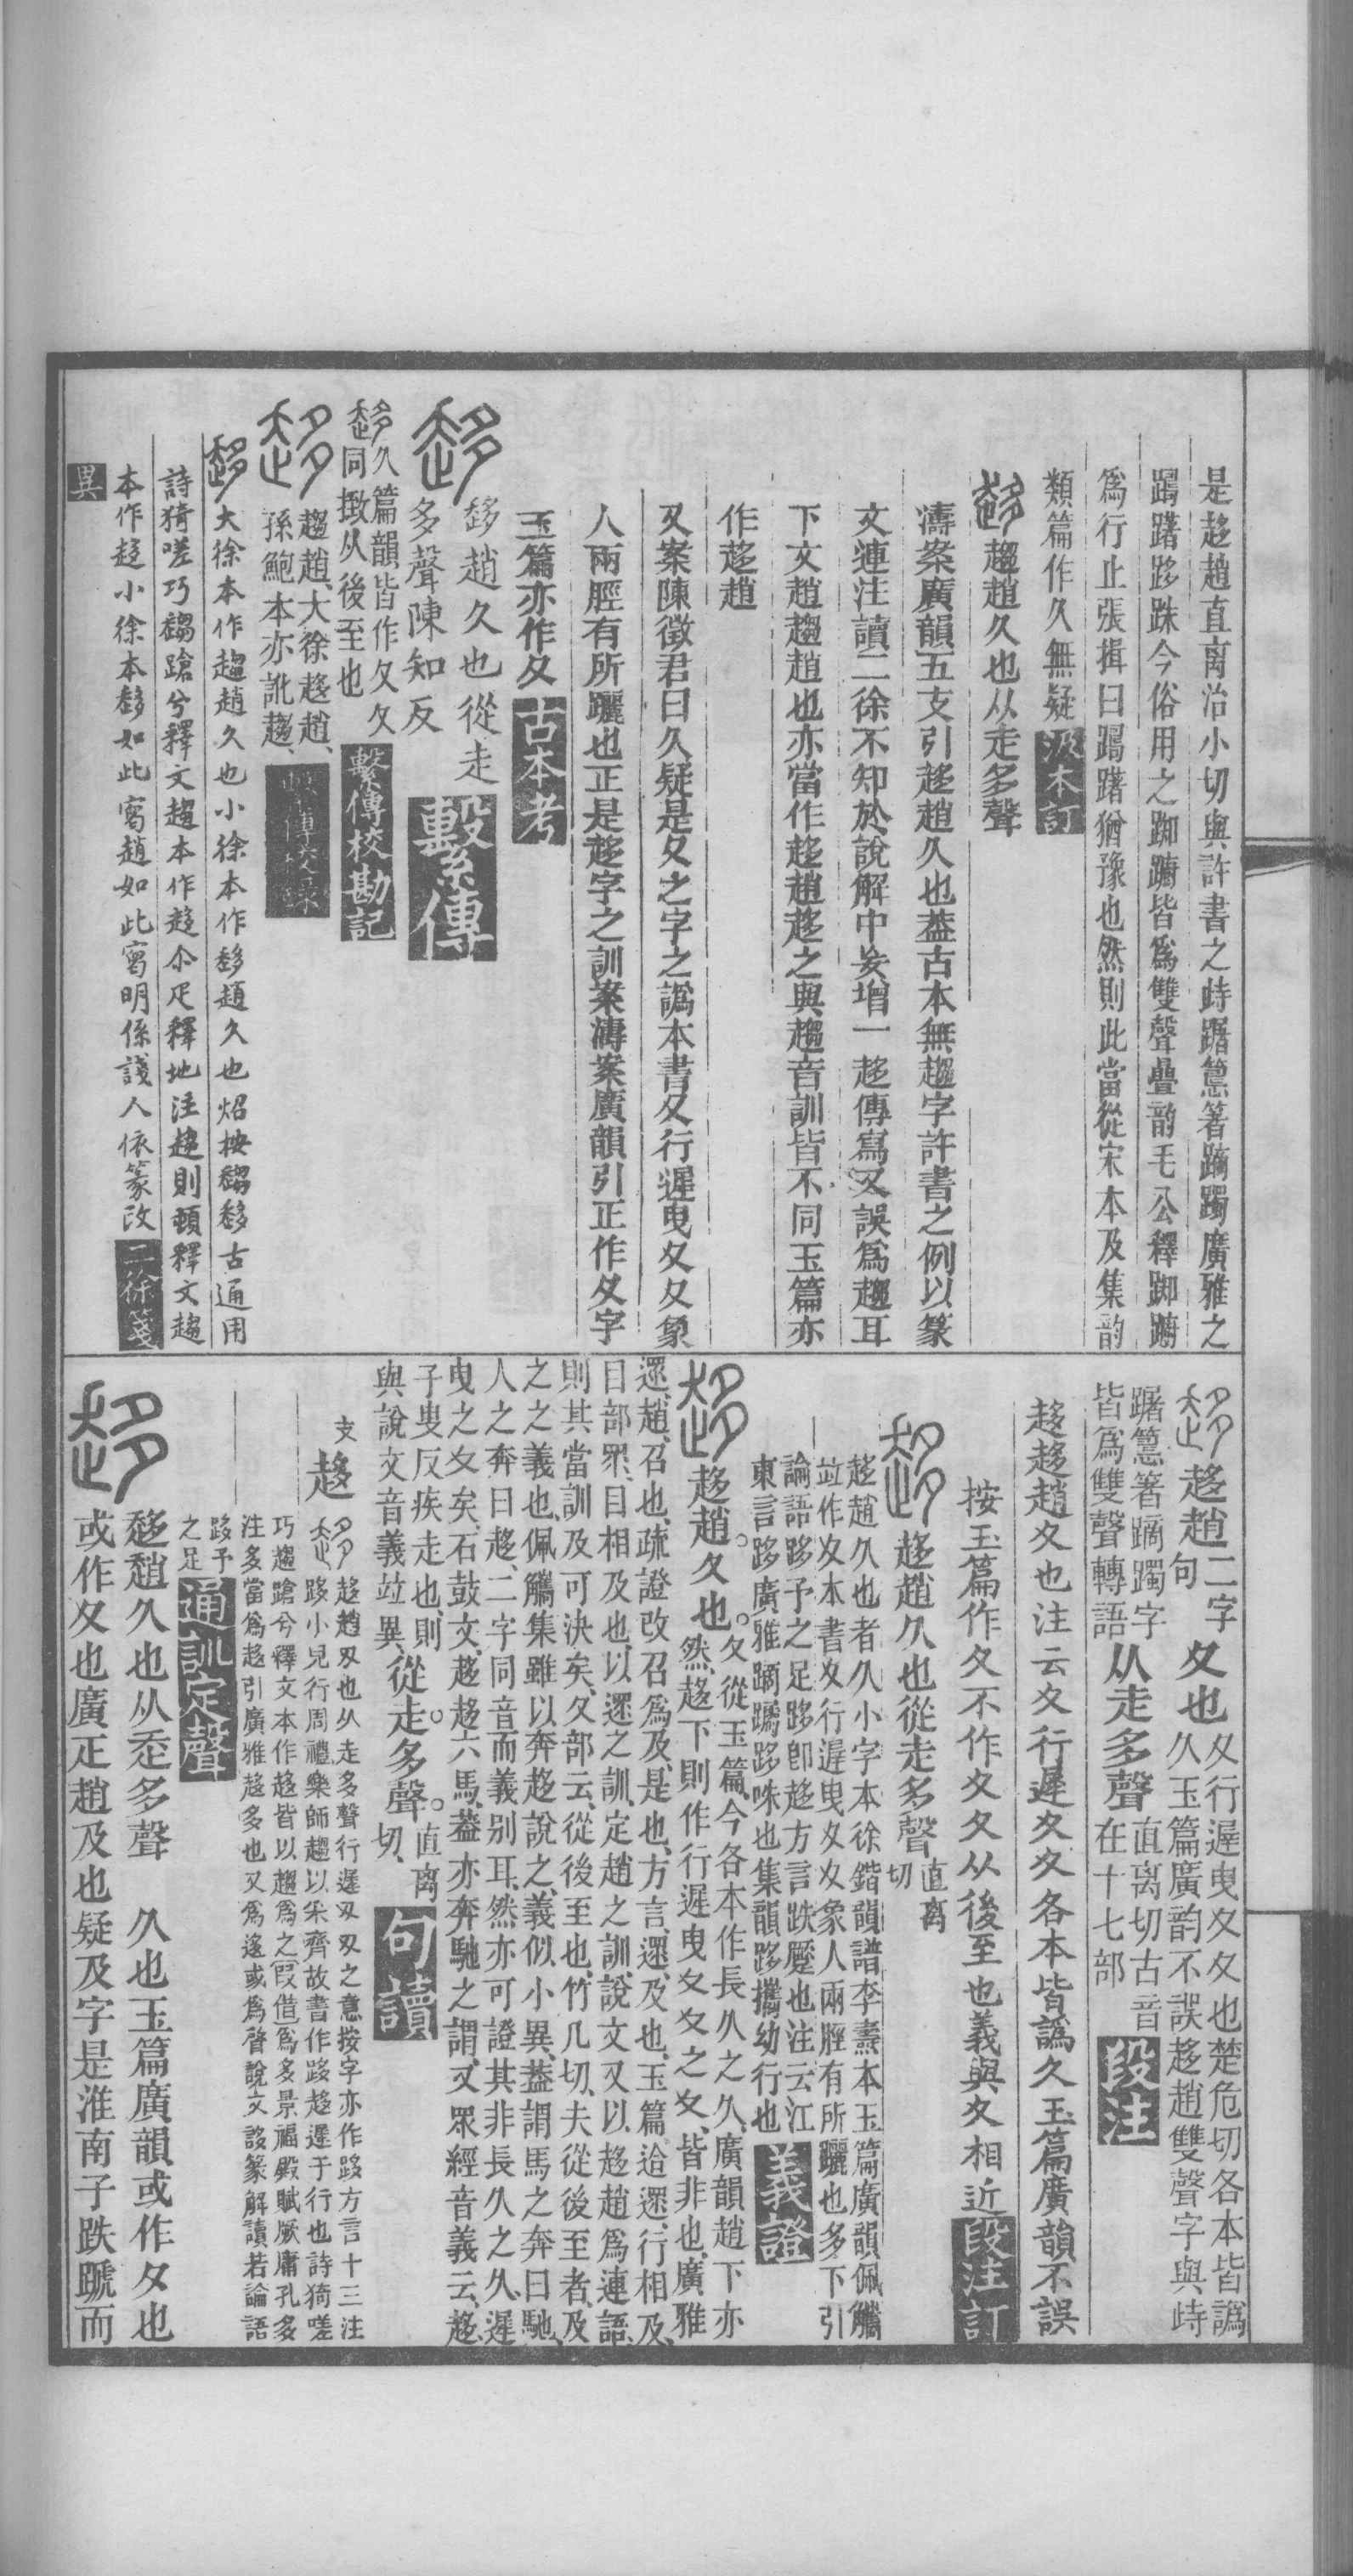 是趍趙直离治小切與許書之峙踞篹箸蹢躅廣雅之
蹢躇跢跦今俗用之踟躕皆爲雙聲疊韵毛公釋踟躕
爲行止張揖曰蹢躇猶豫也然則此當從宋本及集韵
類篇作久無疑 汲本訂
趨趙久也从走多聲
濤案廣韻五支引趍趙久也葢古本無趨字許書之例以篆
文連注讀二徐不知於說解中妄增一趍傳寫又誤爲趨耳
下文趙趨趙也亦當作趍趙趍之與趨音訓皆不同玉篇亦
作趍趙
又案陳徵君曰久疑是夊之字之譌本書夊行遲曳夊夊象
人兩脛有所躧也正是趍字之訓案濤案廣韻引正作夊字
玉篇亦作夊 古本考
趍趙久也從走
多聲陳知反 繫傳
久篇韻皆作夊夊
同㨖从後至也 繫傳校勘記
趨趙、大徐趍趙、
孫鮑本亦訛趨、
大徐本作趨趙久也小徐本作趍趙久也炤按趨趍古通用
詩猗嗟巧趨蹌兮釋文趨本作趍尒疋釋地注趨則頓釋文趨
本作趍小徐本趍如此寫趙如此寫明係淺人依篆改 二徐箋
異
趍趙 二字句 夊也 夊行遲曳夊夊也楚危切各本皆譌
久玉篇廣韵不誤趍趙雙聲字與峙
踞篹箸蹢躅字
皆爲雙聲轉語 从走多聲 直离切古音
在十七部 段注
趍趍趙夊也注云夊行遲夊夊各本皆譌久玉篇廣韻不誤
按玉篇作夂不作夊夂从後至也義與夊相近 段注訂
趍趙久也從走多聲 直离
切
趍趙久也者久小字本徐鍇韻譜李燾本玉篇廣韻佩觿
竝作夊本書夊行遲曳夊夊象人兩脛有所躧也多下引
論語跢予之足跢卽趍方言跌蹷也注云江
東言跢廣雅蹢躅跢咮也集韻跢攜幼行也 義證
趍趙。夊也。夊從玉篇、今各本作長久之久、廣韻趙下亦
然、趍下則作行遲曳夊夊之夊、皆非也、廣雅
遝、趙、召也、疏證改召爲及、是也、方言遝、及也、玉篇迨遝、行相及、
目部眔、目相及也、以遝之訓、定趙之訓、說文又以趍趙爲連語、
則其當訓及可決矣、夂部云、從後至也、竹几切、夫從後至者、及
之之義也、佩觿集雖以奔趍說之、義似小異、葢謂馬之奔曰馳、
人之奔曰趍、二字同音而義别耳、然亦可證其非長久之久、遲
曳之夊矣、石鼓文、趍趍六馬、葢亦奔馳之謂、又眾經音義云、趍、
子叟反疾走也、則
與說文音義竝異、從走。多聲。直离
切、 句讀
支
趍 趍趙夊也从走多聲行遲夊夊之意按字亦作跢方言十三注
跢小兒行周禮樂師趨以采齊故書作跢趍遲于行也詩猗嗟
巧趨蹌兮釋文本作趍皆以趨爲之（叚借）爲多景福殿賦厥庸孔多
注多當爲趍引廣雅趍多也又爲迻或爲䇋說文誃篆解讀若論語
跢予
之足 通訓定聲
趍趙久也从走多聲　久也玉篇廣韻或作夂也
或作夊也廣疋趙及也疑及字是淮南子跌蹏而